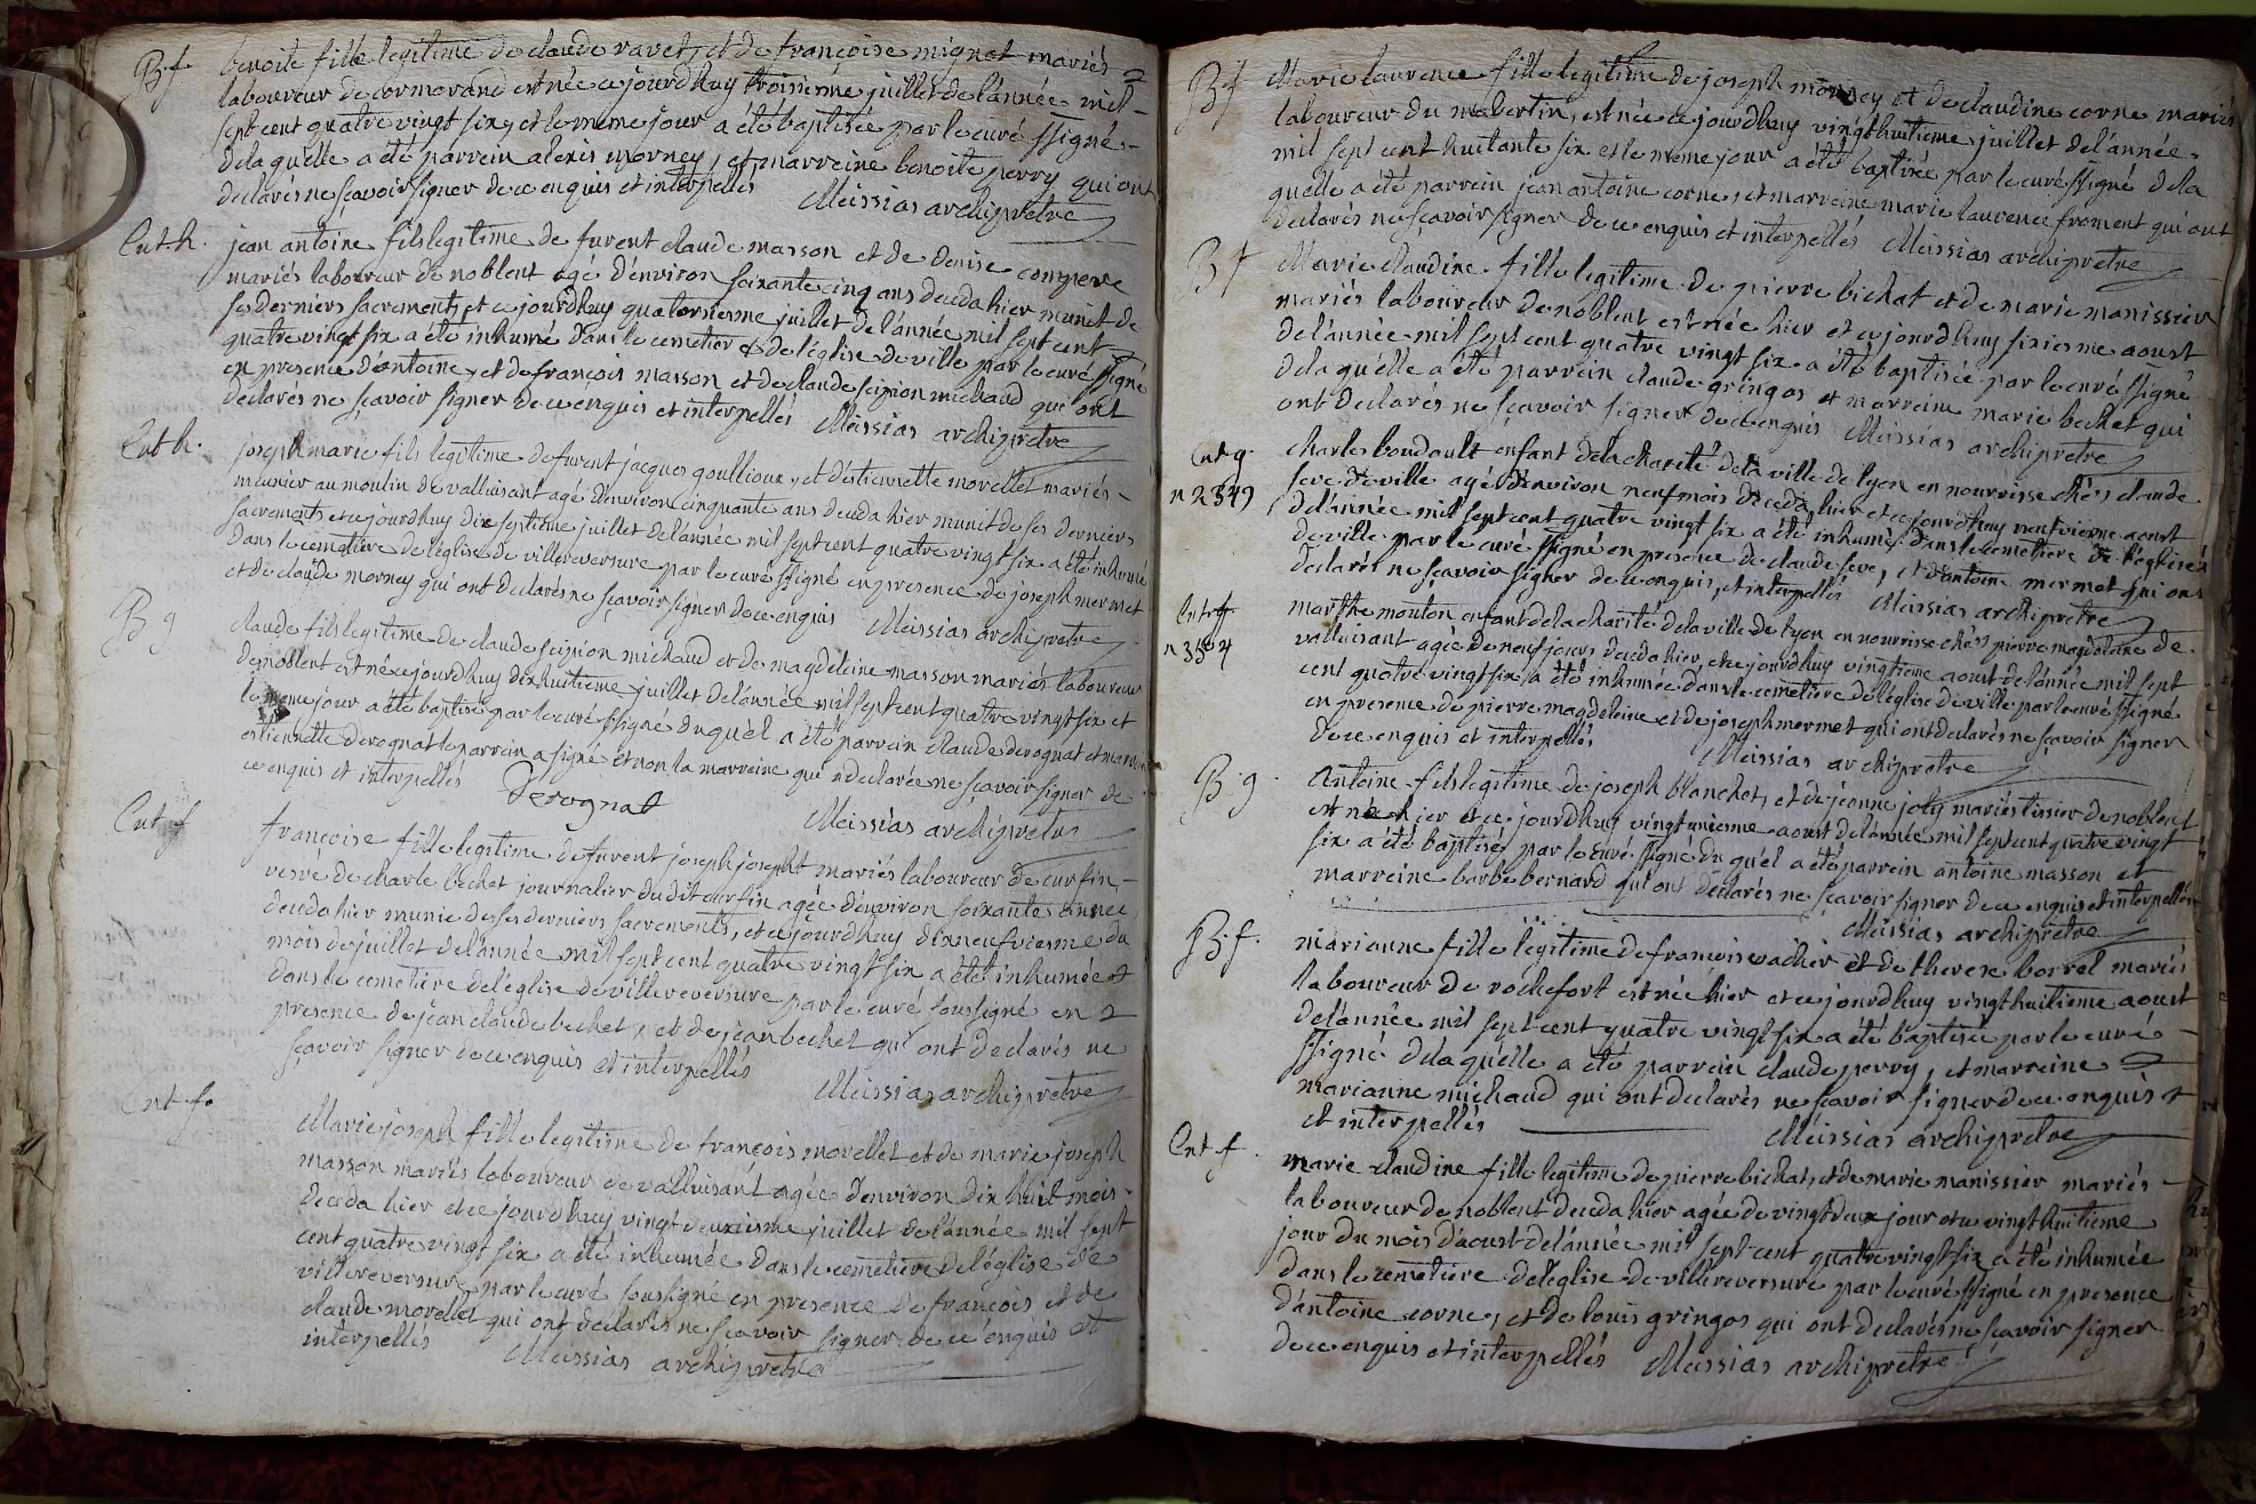 B. f. benoite fille legitime de claude ravet, et de françoise mignot mariés
laboureur de cormorand est née ce jourdhuy troisiesme juillet de l'année mil
sept cent quatre vingt six, et le meme jour a été baptisée par le curé ssigné
de laquelle a été parrein alexis morney, et marreine benoite perry qui ont
declarés ne scavoir signer de ce enquis et interpellés Meissias archiprêtre
Ent. h. jean antoine fils legitime de furent claude masson et de denise compere
mariés laboureur de noblent agé d'environ soixante cinq ans deceda hier munit de
ses derniers sacrements, et ce jourdhuy quatorsiesme juillet de l'année mil sept cent
quatre vingt six a été inhumé dans le cemetier de l'église de ville par le curé ssigné
en presence d'antoine, et de françois masson et de claude scipion michaud qui ont
declarés ne sçavoir signer de ce enquis et interpellés Meissias archiprêtre
Ent h. joseph marie fils legitime de furent jacques goullioux, et d'estiennette morellet mariés
meunier au moulin de valluisant agé d'environ cinquante ans deceda hier munit de ses derniers
sacrements et ce jourdhuy dix septieme juillet de l'année mil sept cent quatre vingt six a été inhumé
dans le cemetiere de l'église de villereversure par le curé ssigné en presence de joseph mermet
et de claude morney qui ont declarés ne sçavoir signer de ce enquis Meissias archiprêtre
B g claude fils legitime de claude scipion michaud et de magdeleine masson mariés laboureur
de noblent est né ce jourdhuy dixhuitieme juillet de l'année mil sept cent quatre vingt six et
le meme jour a été baptisé par le curé ssigné duquel a été parrein claude derognat et marreine
estiennette derognat le parrein a signé et non la marreine qui a declarée ne sçavoir signer de
ce enquis et interpellés Derognat
Meissias archiprêtre
Ent. f françoise fille legitime de furent joseph josepht mariés laboureur de curfin
vesve de charle bechet journalier du dit curfin agée d'environ soixante année
deceda hier munie de ses derniers sacrements, et ce jourdhuy dixneufviesme du
mois de juillet de l'année mil sept cent quatre vingt six a été inhumée
dans le cemetiere de l'église de villereversure par le curé soussigné en
presence de jean claude bechet, et de jean bechet qui ont declarés ne
sçavoir signer de ce enquis et interpellés
Meissias archiprêtre
Ent. f. Marie joseph fille legitime de françois morellet et de marie joseph
masson mariés laboureur de valluisant agée d'environ dix huit mois
deceda hier et ce jourdhuy vingt deuxiesme juillet de l'année mil sept
cent quatre vingt six a été inhumée dans le cemetiere de l'église de
villereversure par le curé soussigné en presence de françois et de
claude morellet qui ont declarés ne scavoir signer de ce enquis et
interpellés Meissias archiprêtre
B f Marie laurence fille legitime de joseph morney et de claudine corne mariés
laboureur du mabertin, est née ce jourdhuy vingthuitieme juillet de l'année
mil sept cent huitante six et le meme jour a été baptisée par le curé ssigné de la
quelle a été parrein jean antoine corne, et marreine marie laurence froment qui ont
declarés ne sçavoir signer de ce enquis et interpellés Meissias archiprêtre
B f Marie claudine fille legitime de pierre bichat et de marie manissier
mariés laboureur de noblent est née hier et ce jourdhuy sixiesme aoust
de l'année mil sept cent quatre vingt six a été baptisée par le curé ssigné
de laquelle a été parrein claude gringos et marreine marie bechet qui
ont declarés ne sçavoir signer de ce enquis Meissias archiprêtre
Ent. g. charles boudault enfant de la charité de la ville de lyon en nourrisse chés claude
n 2349 seve de ville agé d'environ neuf mois deceda hier et ce jourdhuy neufviesme aoust
de l'année mil sept cent quatre vingt six a été inhumé dans le cemetiere de l'eglise
de ville par le curé ssigné en presence de claude seve, et d'antoine mermet qui ont
declarés ne sçavoir signer de ce enquis, et interpellés Meissias archiprêtre
Ent. f marthe mouton enfant de la charité de la ville de lyon en nourrisse chés pierre magdelaine de
n 3504 valluisant agée de neuf jours deceda hier, et ce jourdhuy vingtieme aoust de l'année mil sept
cent quatre vingt six a été inhumée dans le cemetiere de l'église de ville par le curé ssigné
en presence de pierre magdeleine et de joseph mermet qui ont declarés ne sçavoir signer
de ce enquis et interpellés Meissias archiprêtre
B. g. Antoine fils legitime de joseph blanchet, et de jeanne joly mariés tissier de noblent
est né hier et ce jourdhuy vingt uniesme aoust de l'année mil sept cent quatre vingt
six a été baptisé par le curé ssigné du quel a été parrein antoine masson et
marreine barbe bernard qui ont declarés ne sçavoir signer de ce enquis et interpellés
Meissias archiprêtre
B. f. marianne fille legitime de françois vachier et de therese borrel mariés
laboureur de rochefort est née hier et ce jourdhuy vingthuitieme aoust
de l'année mil sept cent quatre vingt six a été baptisée par le curé
ssigné de laquelle a été parrein claude perry, et marreine
marianne michaud qui ont declarés ne sçavoir signer de ce enquis
et interpellés Meissias archiprêtre
Ent f. marie claudine fille legitime de pierre bichat, et de marie manissier mariés
laboureur de noblent deceda hier agée de vingt deux jour et ce vingt huitieme
jour du mois d'aoust de l'année mil sept cent quatre vingt six a été inhumée
dans le cemetiere de l'église de villereversure par le curé ssigné en presence
d'antoine corne, et de louis gringos qui ont declarés ne sçavoir signer
de ce enquis et interpellés Meissias archiprêtre